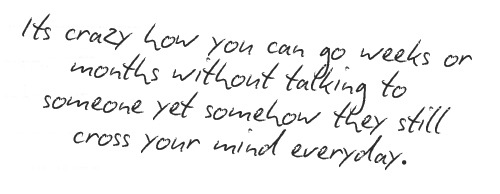 Its crazy how you can go weeks or
months without talking to
someone yet somehow they still
cross your mind everyday.